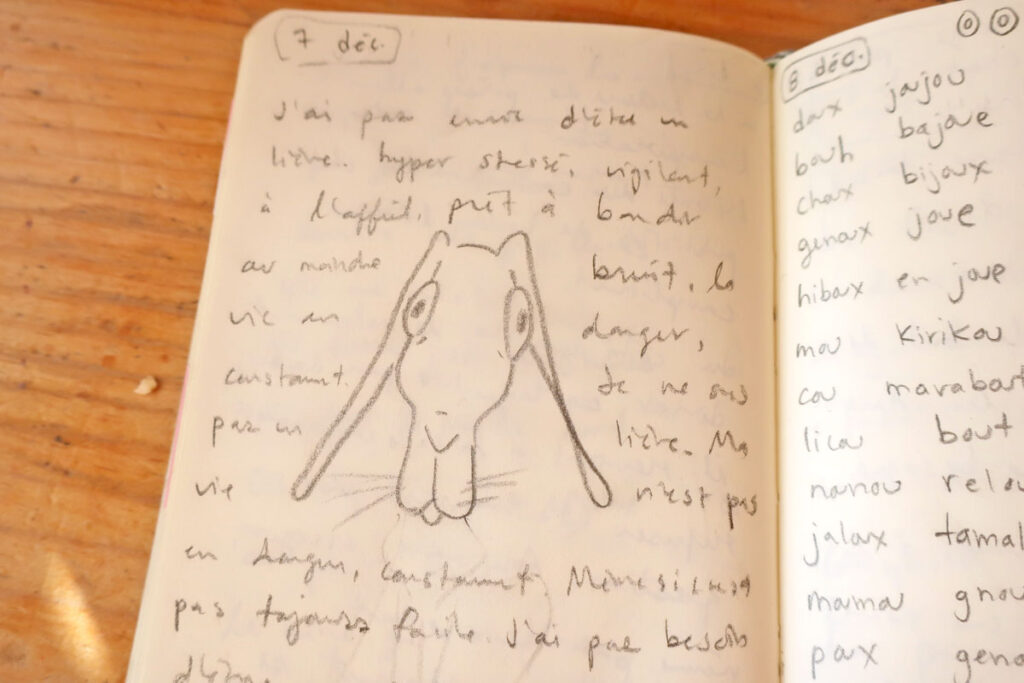 7 déc.
J'ai pas envie d'être un
lièvre. hyper stressé, vigilant,
à l'affût, prêt à bondir
au moindre bruit. la
vie en danger,
constamment. Je ne suis
pas un lièvre. Ma
vie n'est pas
en danger, constamment. Même si c'est
pas toujours facile. J'ai pas besoin
d'être
8 déc.
doux joujou
bouh bajoue
choux bijoux
genoux joue
hiboux en joue
mou Kirikou
cou marabout
licou bout
nounou relou
jaloux
mamou gnou
poux genou